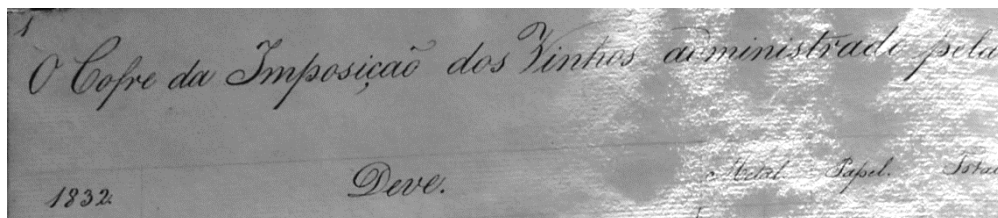 1
O Cofre da Imposição dos Vinhos administrado pela
1832. Deve. Metal Papel. Total